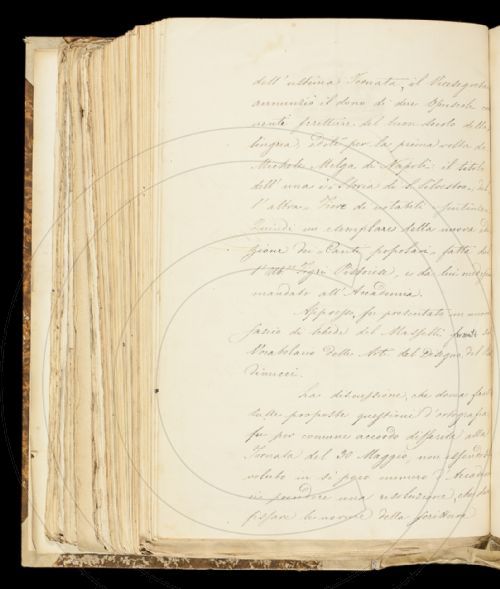 dell'ultima Tornata, il Vicesegreta
annunziò il dono di due Opuscoli con
nenti scritture del buon secolo della
lingua, editi per la prima volta da
Michele Melga di Napoli: il titolo
dell'una è: Storia di S. Silvestro, del
l'altra Fiore di notabili sentenze.
Quindi un esemplare della nuova edi
zione de' Canti popolari, fatta da
Tigri Pistoiese, e da lui
mandato all'Accademia.
Appresso, fu presentato un nuovo
fascio di schede del Masselli formate sul
Vocabolario delle Arti del Disegno, del Bal
dinucci.
La discussione, che dovea farsi
sulle proposte questioni d'ortografia
fu per comune accordo differita alla
Tornata del 30 Maggio, non essendosi
voluto in sì poco numero d'Accade
prendere una risoluzione, che
fissare le norme della scrittura